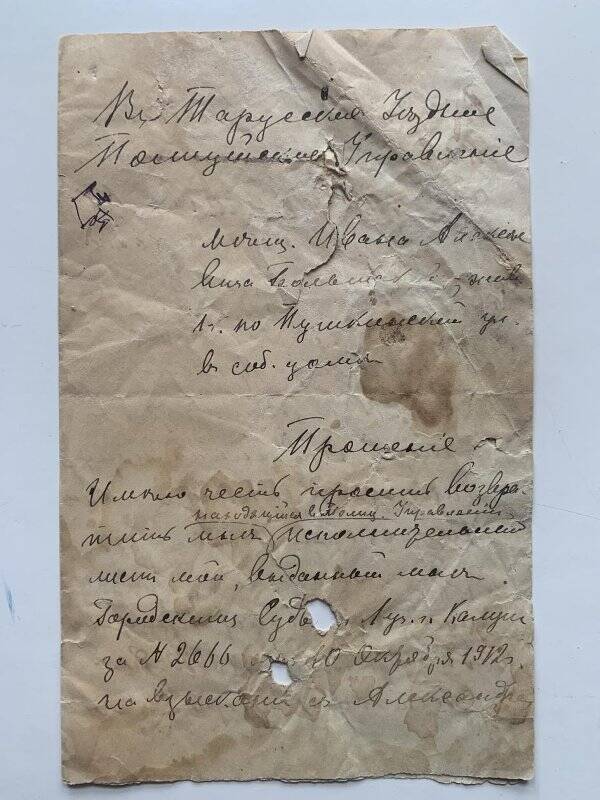 Въ Тарусское Уѣздное
Полицейское Управленіе
мѣщ. Ивана Алексѣе
вича жив
по Пушкинской ул.
въ соб. домѣ
Прошеніе
Имѣю честь просить возвра-
находящійся въ Полиц. Управленіи
тить мнѣ исполнительный
листъ мой, выданный мнѣ
Городскимъ Судьей г. Калуги
за № 2666 10 Октября 1912 г.
на взысканіе съ Александра